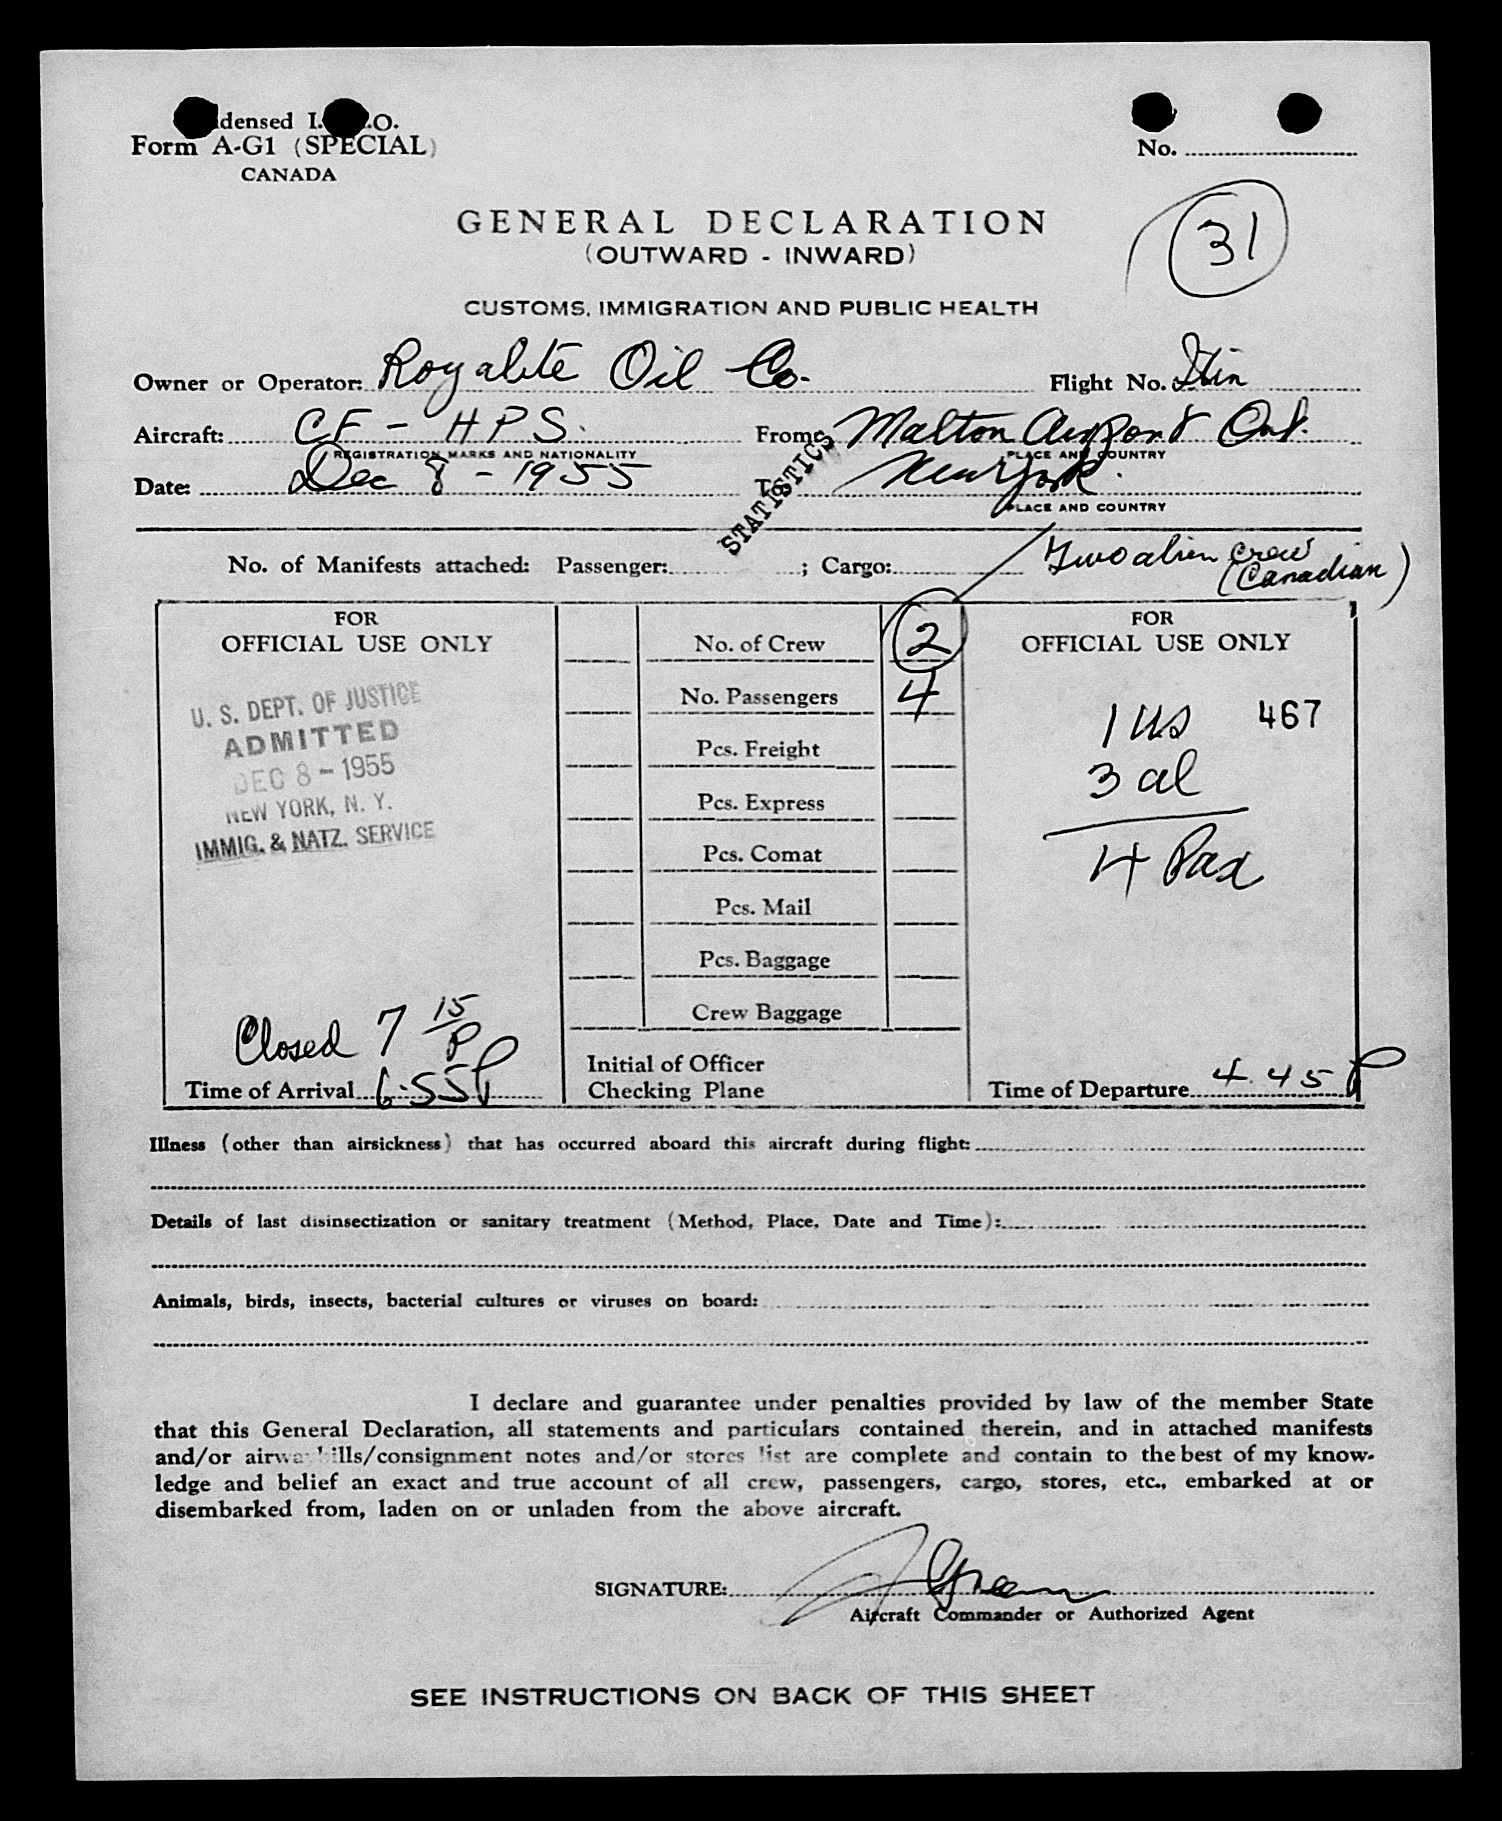 densed I. .O.
Form A-G1 (SPECIAL)
CANADA
No.
GENERAL DECLARATION
(OUTWARD - INWARD)
31
CUSTOMS, IMMIGRATION AND PUBLIC HEALTH
Owner or Operator: Royalite Oil Co. Flight No. Itin
Aircraft: CF - HPS. From: Malton Airport Ont.
REGISTRATION MARKS AND NATIONALITY PLACE AND COUNTRY
Date: Dec 8 - 1955 To New York.
PLACE AND COUNTRY
STATISTICS
No. of Manifests attached: Passenger: ; Cargo: Two alien crew
(Canadian)
FOR
OFFICIAL USE ONLY
U. S. DEPT. OF JUSTICE
ADMITTED
DEC 8 - 1955
NEW YORK, N. Y.
IMMIG. & NATZ. SERVICE
Closed 7 15 P
Time of Arrival 6:55 P
No. of Crew 2
No. Passengers 4
Pcs. Freight
Pcs. Express
Pcs. Comat
Pcs. Mail
Pcs. Baggage
Crew Baggage
Initial of Officer
Checking Plane
FOR
OFFICIAL USE ONLY
1 US 467
3 al
4 Pax
Time of Departure 4.45 P
Illness (other than airsickness) that has occurred aboard this aircraft during flight:
Details of last disinsectization or sanitary treatment (Method, Place, Date and Time):
Animals, birds, insects, bacterial cultures or viruses on board:
I declare and guarantee under penalties provided by law of the member State
that this General Declaration, all statements and particulars contained therein, and in attached manifests
and/or airwaybills/consignment notes and/or stores list are complete and contain to the best of my know-
ledge and belief an exact and true account of all crew, passengers, cargo, stores, etc., embarked at or
disembarked from, laden on or unladen from the above aircraft.
SIGNATURE: J Green
Aircraft Commander or Authorized Agent
SEE INSTRUCTIONS ON BACK OF THIS SHEET